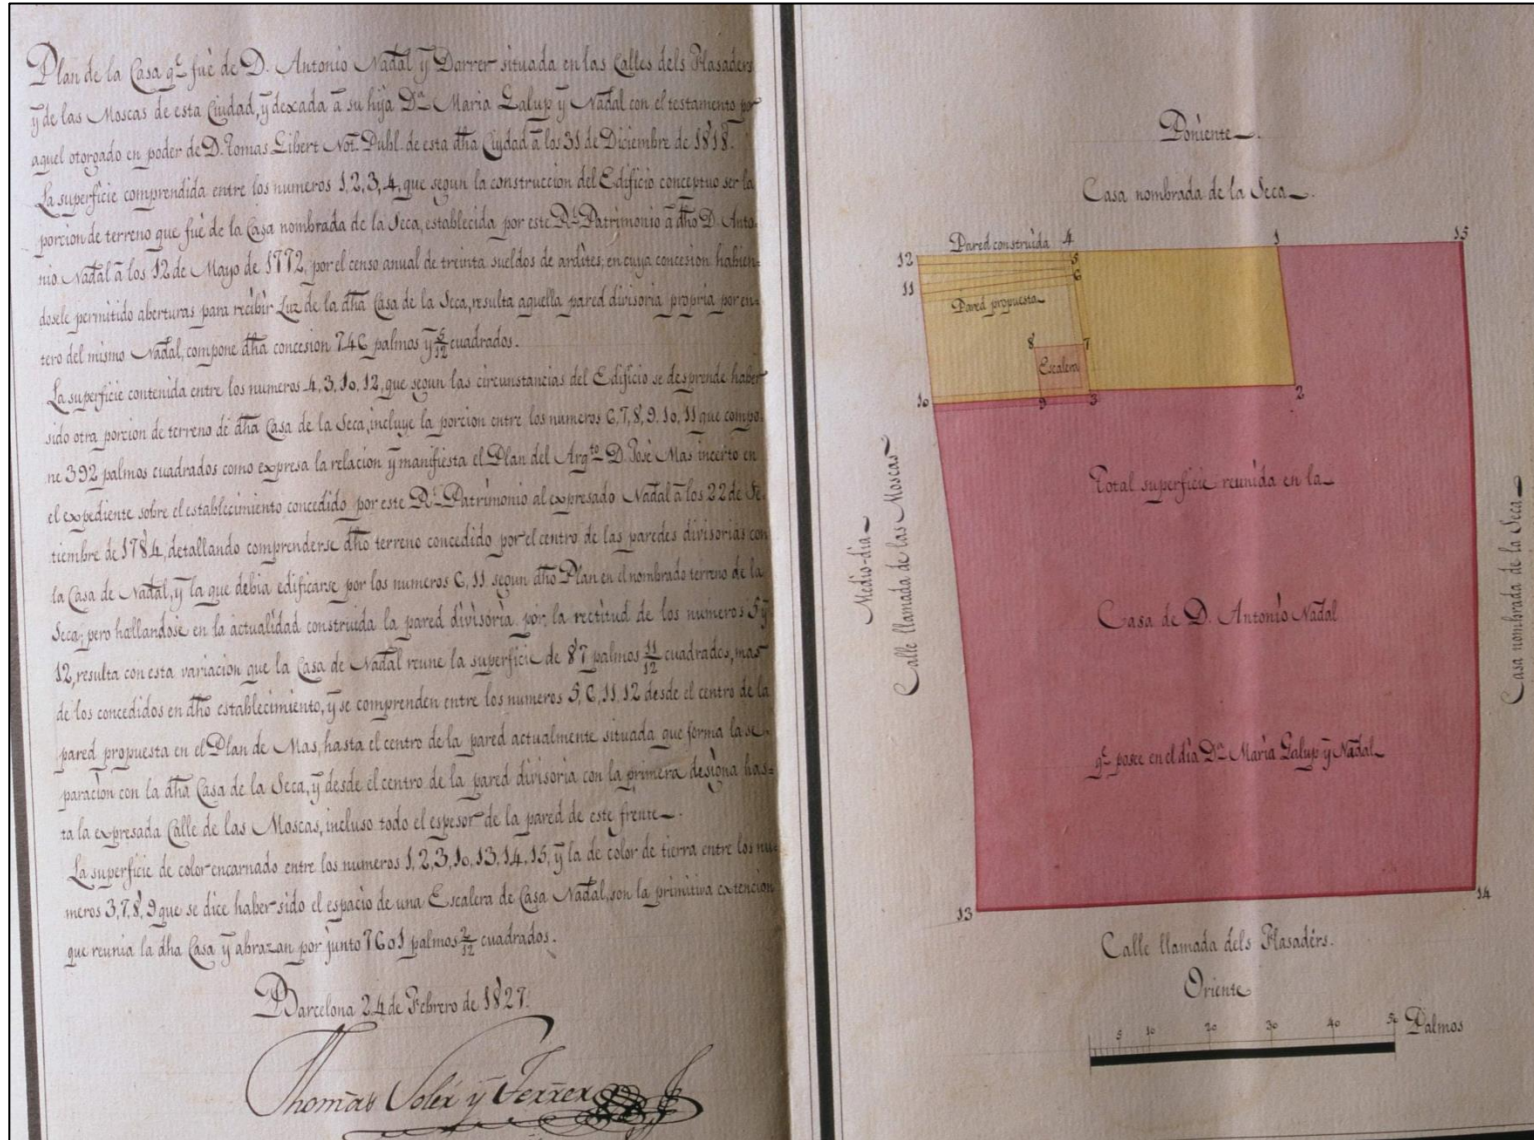 Plan de la Casa qᵉ fué de D. Antonio Nadal ȳ Darrer situada en las Calles dels Flasaders
ȳ de las Moscas de esta Ciudad, ȳ dexada á su hija Dᵃ Maria Galup ȳ Nadal con el testamento por
aquel otorgado en poder de D. Tomas Gibert Notº Publ. de esta dha Ciudad á los 31 de Diciembre de 1818.
La superficie comprendida entre los numeros 1, 2, 3, 4, que segun la construccion del Edificio conceptuo ser la
porcion de terreno que fué de la Casa nombrada de la Seca, establecida por este Rˡ Patrimonio á dho D. Anto-
nio Nadal á los 12 de Mayo de 1772, por el censo anual de treinta sueldos de ardites; en cuya concesion habien=
dosele permitido aberturas para recibir Luz de la dha Casa de la Seca, resulta aquella pared divisoria propria por en-
tero del mismo Nadal, compone dha concesion 746 palmos ȳ 5/12 cuadrados.
La superficie contenida entre los numeros 4, 3, 10, 12, que segun las circunstancias del Edificio se desprende haber
sido otra porcion de terreno de dha Casa de la Seca, incluye la porcion entre los numeros 6, 7, 8, 9, 10, 11 que compo-
ne 392 palmos cuadrados como expresa la relacion ȳ manifiesta el Plan del Arqᵗᵒ D. José Mas incerto en
el expediente sobre el establecimiento concedido por este Rˡ Patrimonio al expresado Nadal á los 22 de Se-
tiembre de 1784, detallando comprenderse dho terreno concedido por el centro de las paredes divisorias con
la Casa de Nadal, ȳ la que debia edificarse por los numeros 6, 11 segun dho Plan en el nombrado terreno de la
Seca; pero hallandose en la actualidad construida la pared divisoria por la rectitud de los numeros 5 ȳ
12, resulta con esta variacion que la Casa de Nadal reune la superficie de 87 palmos 11/12 cuadrados, mas
de los concedidos en dho establecimiento, ȳ se comprenden entre los numeros 5, 6, 11, 12 desde el centro de la
pared propuesta en el Plan de Mas, hasta el centro de la pared actualmente situada que forma la se-
paracion con la dha Casa de la Seca, ȳ desde el centro de la pared divisoria con la primera designa has=
ta la expresada Calle de las Moscas, incluso todo el espesor de la pared de este frente.
La superficie de color encarnado entre los numeros 1, 2, 3, 10, 13, 14, 15, ȳ la de color de tierra entre los nu-
meros 3, 7, 8, 9 que se dice haber sido el espacio de una Escalera de Casa Nadal, son la primitiva extencion
que reunia la dha Casa ȳ abrazan por junto 7601 palmos 2/12 cuadrados.
Barcelona 24 de Febrero de 1827.
Thomás Solér ȳ Ferrer
Poniente
Casa nombrada de la Seca
Pared construida
4
1
15
12
5
6
11
Pared propuesta
8
7
Escalera
10
9
3
2
Total superficie reunida en la
Casa de D. Antonio Nadal
qᵉ posee en el dia Dᵃ Maria Galup ȳ Nadal
Medio-dia
Calle llamada de las Moscas
Casa nombrada de la Seca
13
14
Calle llamada dels Flasadérs.
Oriente
5 10 20 30 40 50 Palmos